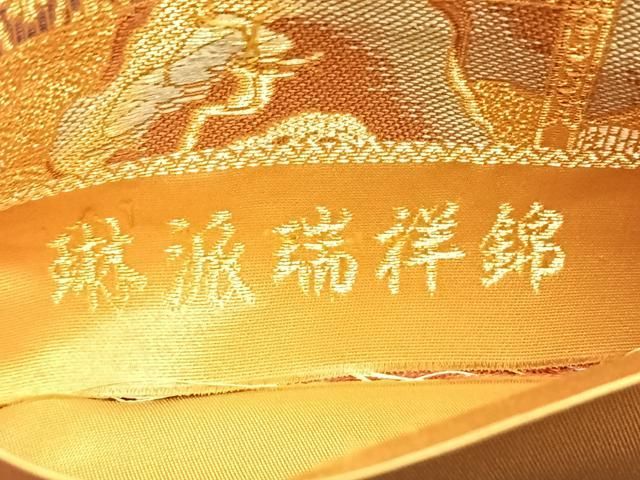 琳派瑞祥錦